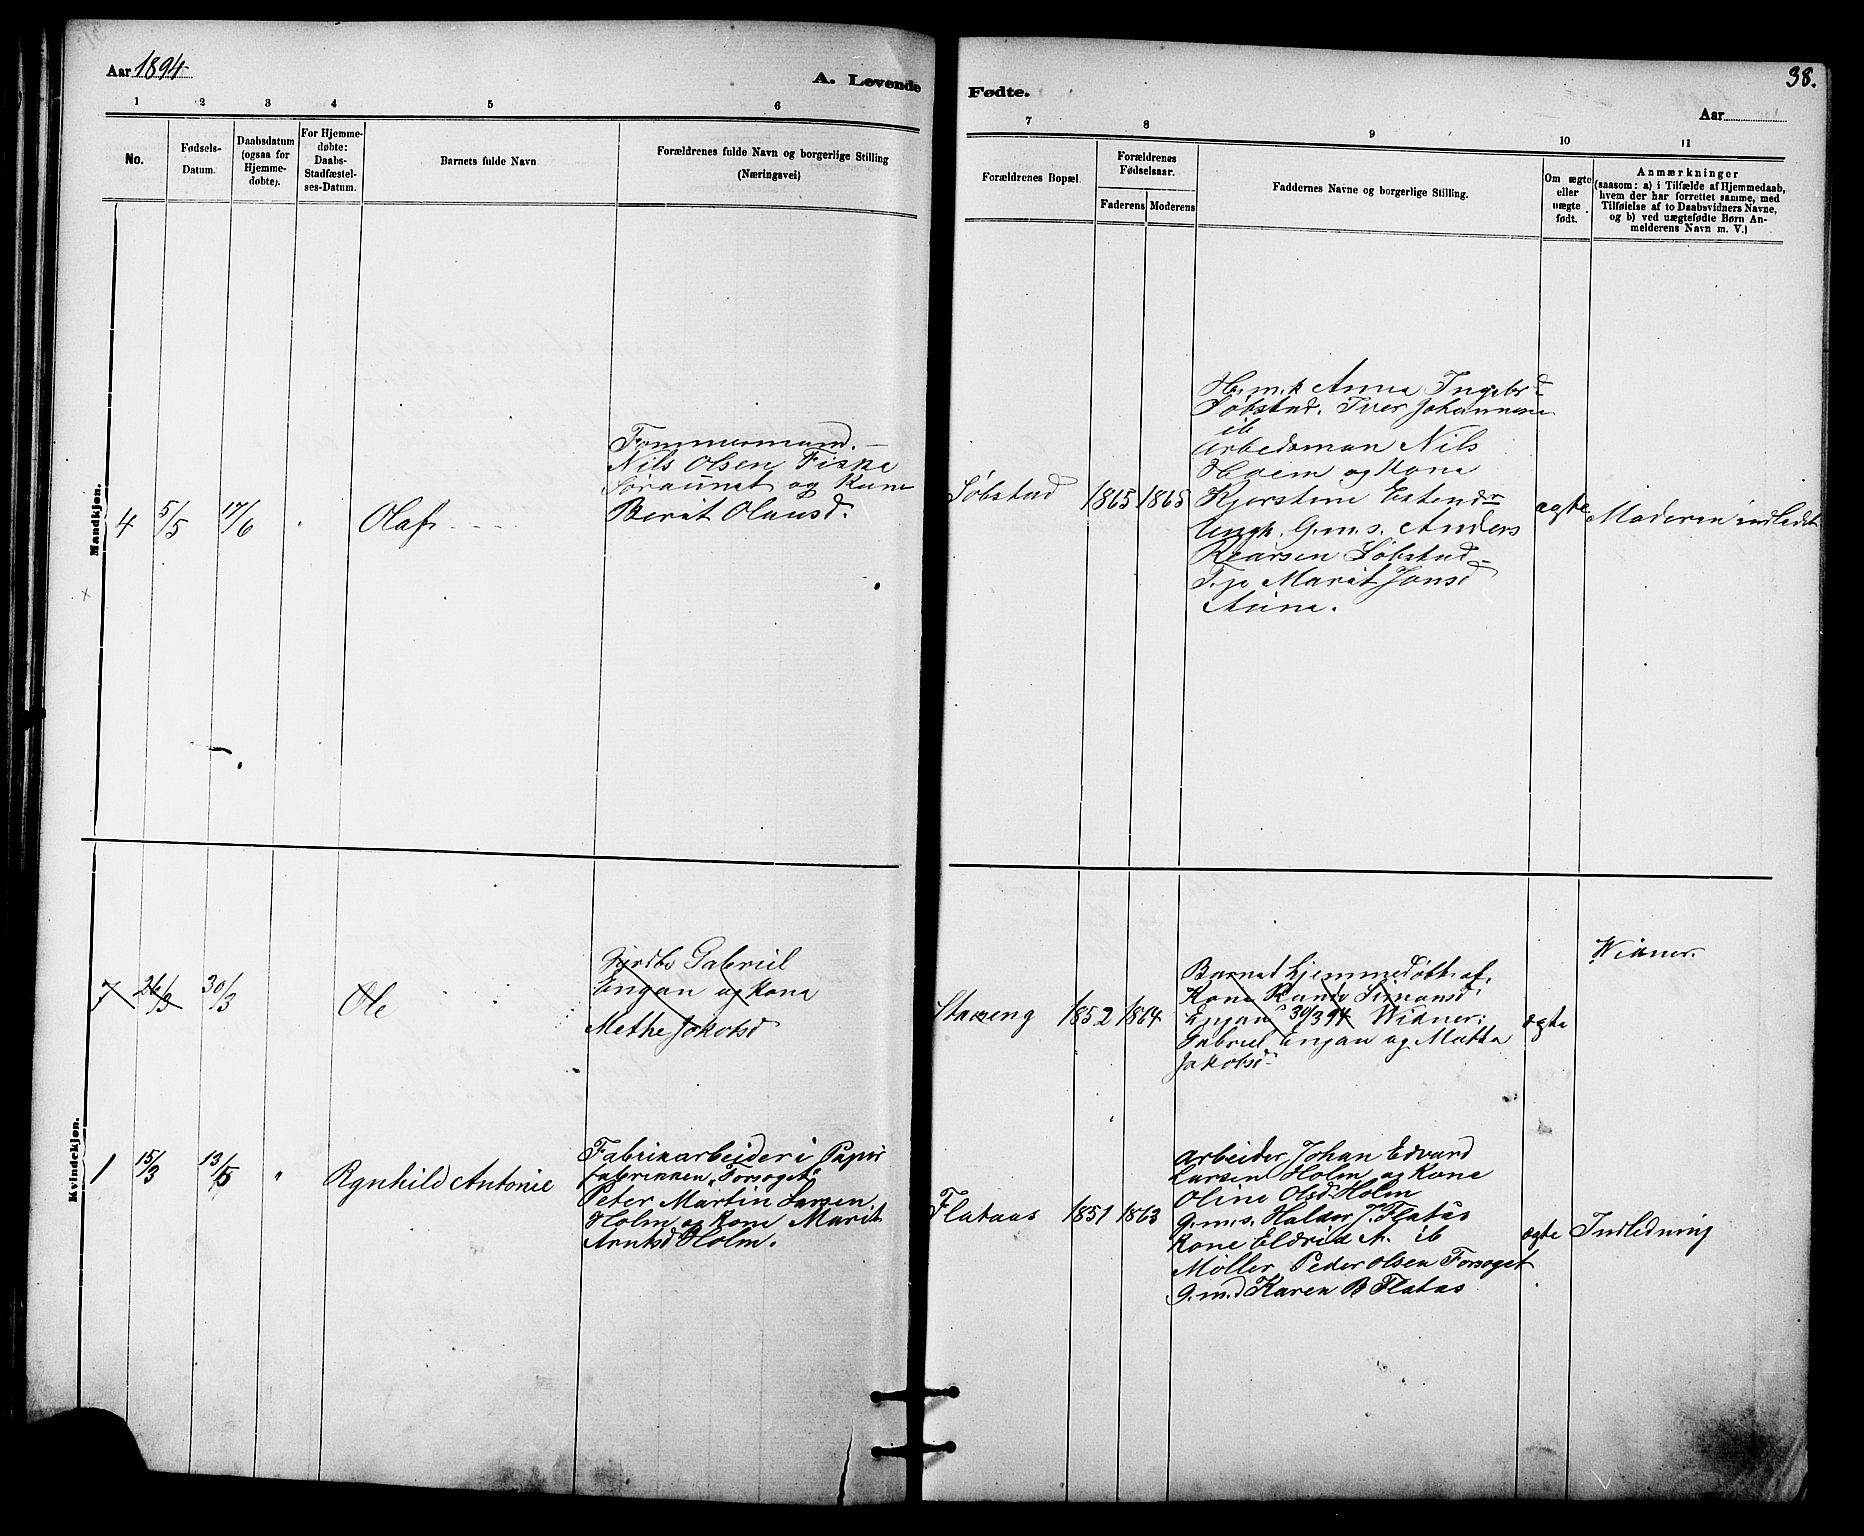 Aar 1894
A. Levende
Fødte.
38.
Aar
1 2 3 4 5 6 7 8 9 10 11
No.
Fødsels-
Datum.
Daabsdatum
(ogsaa for
Hjemme-
døbte).
For Hjemme-
døbte:
Daabs-
Stadfæstel-
ses-Datum.
Barnets fulde Navn
Forældrenes fulde Navn og borgerlige Stilling
(Næringsvei)
Forældrenes Bopæl.
Forældrenes
Fødselsaar.
Faderens Moderens
Faddernes Navne og borgerlige Stilling.
Om ægte
eller
uægte
født.
Anmærkninger
(saasom: a) i Tilfælde af Hjemmedaab,
hvem der har forrettet samme, med
Tilføielse af to Daabsvidners Navne,
og b) ved uægtefødte Børn An-
melderens Navn m. V.)
Mandkjøn.
4 5/5 17/6 " Olaf
Tømmermand.
Nils Olsen Fiske
og Kone
Berit Olausd.
Søbstad 1865 1865
H.m.k Anna Ingebrd
Søbstad. Iver Johannese
ib
Arbedsman Nils
Hoem og Kone
Kjerstine Estensdr
Ungk. G.m.s. Anders
Søbstad
Tje Marit Jonsd
Aune.
ægte Moderen indledet
7 26/3 30/3 Ole
Gabriel
Engan og Kone
Methe Jakobsd
1852 1864
Barnet hjemmedøbt af
Kone Simonsd
Engan 30/3 94 Widner:
Gabriel Engan og Metha
Jakobsd
ægte
Widner.
Kvindekjøn.
1 15/3 13/5 " Rgnhild Antonie
Fabrikarbeider i Papir
fabrikken "Forsøget"
Peter Martin Larsen
Holm og Kone Marit
Arntsd Holm.
Flataas 1851 1863
Arbeider Johan Edvard
Larsen Holm og Kone
Oline Olsd Holm
G.m.s. Haldor J. Flatås
Kone Eldrid A. ib
Møller Peder Olsen Forsøget
G.m.d Karen B Flatås
ægte Indledning